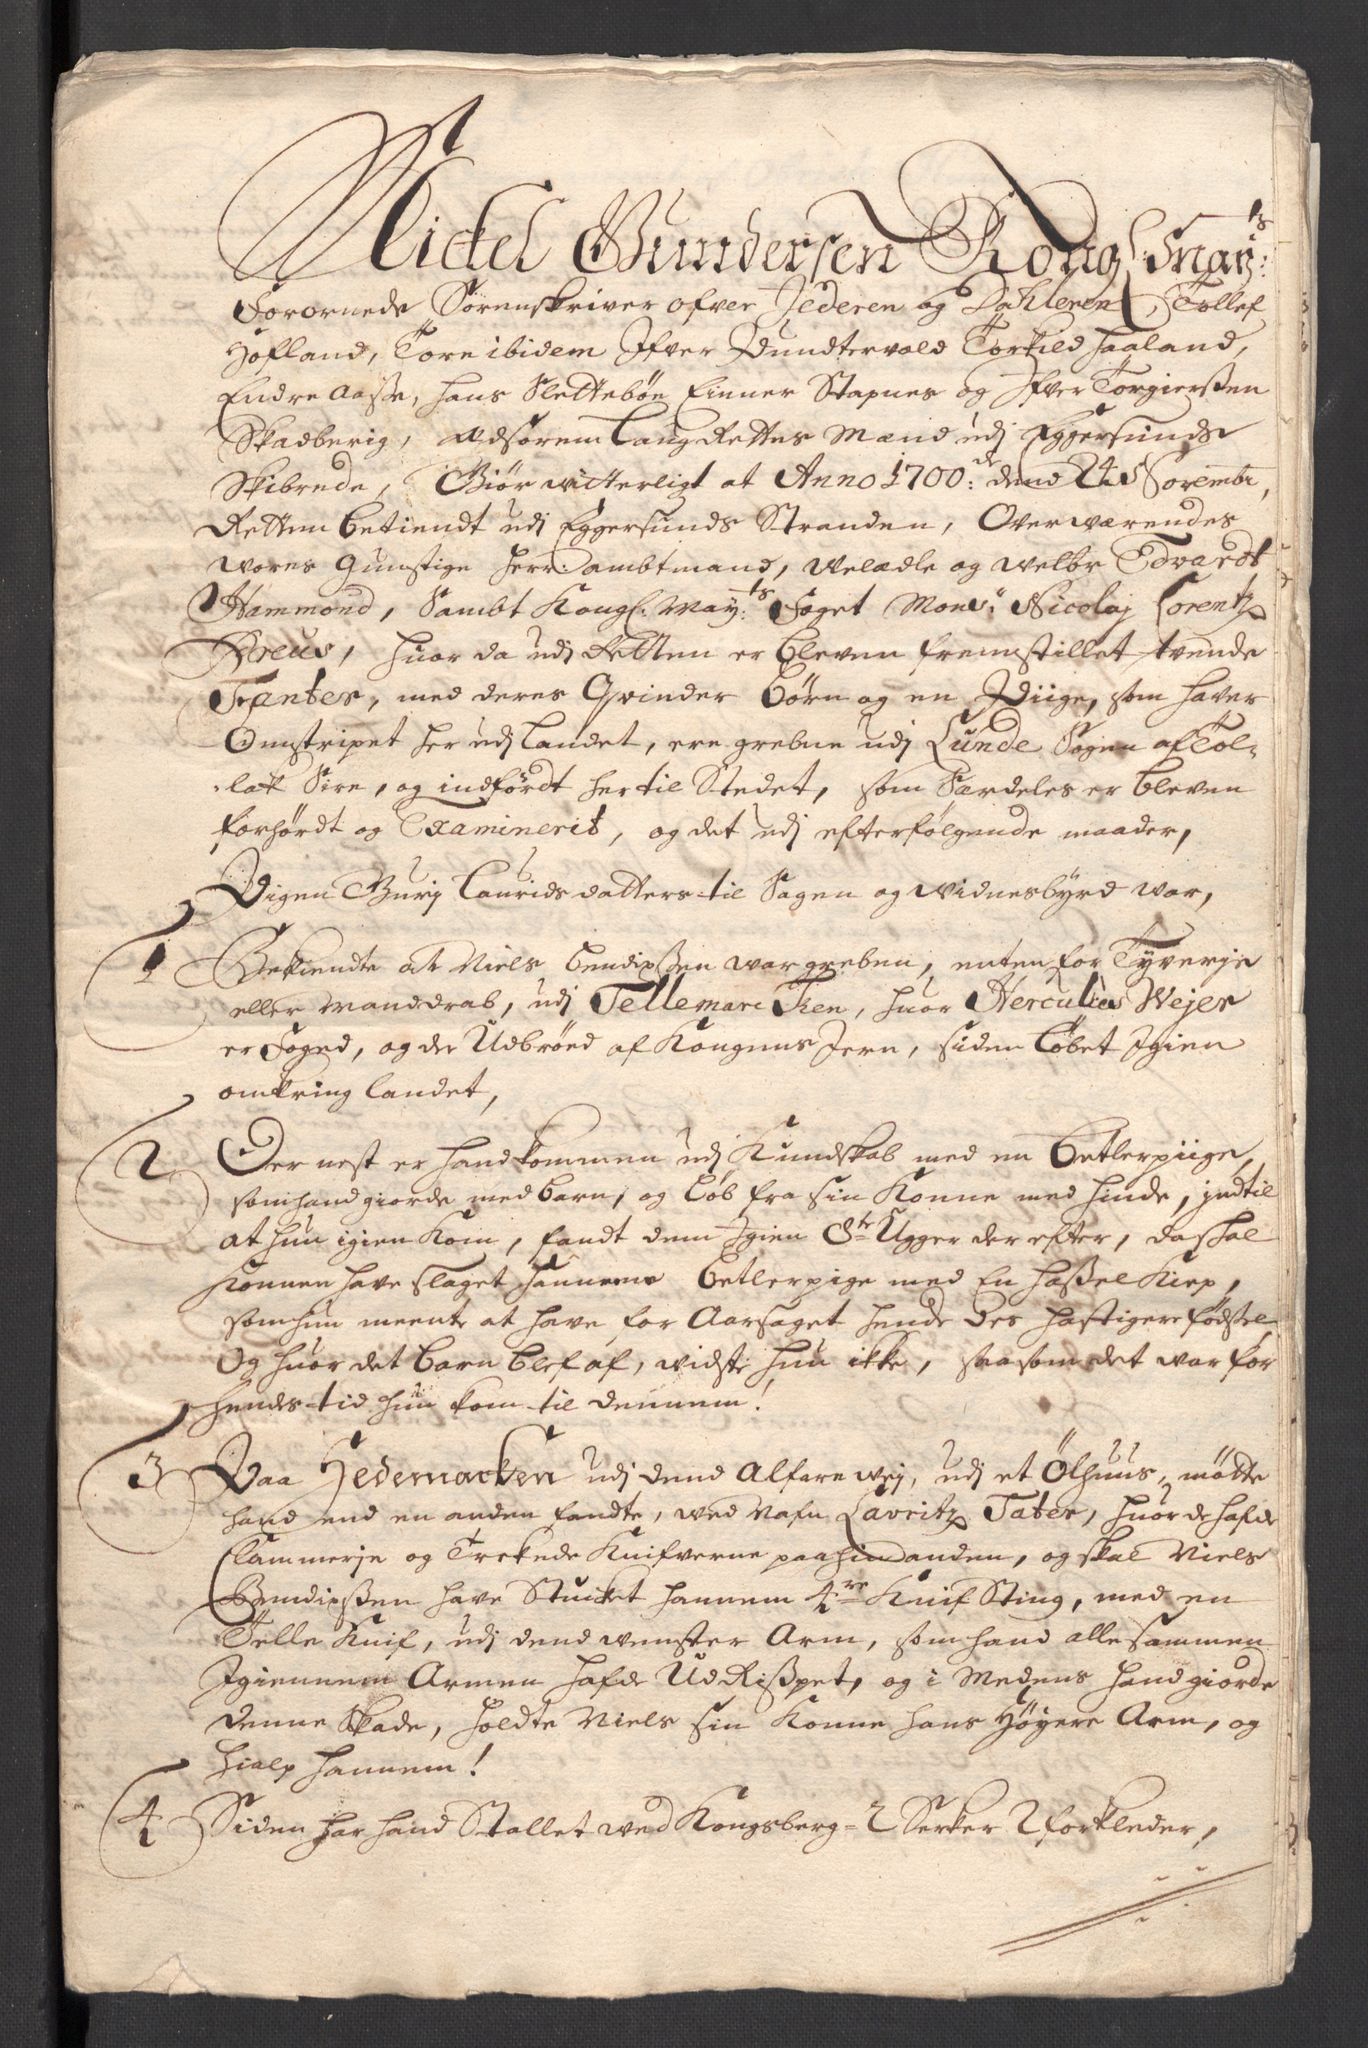 Michel Gundersen Kongl: May:ts
Forornede Sørenskriver ofver Jederen og Dahlerne, Tollef
Høfland, Tore ibidem Ifver Pundtervold Torkild Haaland,
Endre Aaße, Hans Slettebøe Einner Stapnes og Ifver Torgierßen
Skadberig, Edsorem Laug Rettes Mænd udj Eggersunds
Skibrede, Giør witterligt at Anno 1700: dend 24 Novembr,
Retten betiendt udj Eggersunds Stranden, Overværendes
wores gunstige Herr: Ambtmand, welædle og welbr Edvardt
Hammond, Sambt Kongl. May:ts Foget Monsr Nicolaj Lorentz
Preus, huor da udj Retten er bleven fremstillet tvende
Fanter, med deres Qvinder børn og en Piige, som haver
Omstripet her udj Landet, ere grebne udj Lunde Sogen af Tol-
lak Sire, og indførdt her til Stedet, som Særdeles er bleven
forhørdt og Examinerit, og det udj efterfølgende maader,
Pigen Gurj Lauridsdatters til Sagen og Widnesbyrd war,
1 Bekiendte at Niels Bendixßen war greben, enten for Tyverje
eller Manddrab, udj Tellemarcken, huor Herculius Wejer
er Foged, og der Udbrød af Kongens Jern, siden løbet Igien
omkring landet,
2 Der nest er hand kommen udj Kundskab med en betlerpiige,
som hand giorde med barn, og løb fra sin Konne med hinde, indtil
at hun igien kom, fandt dem Igien 8te Ugger der efter, da skal
Konnen have slaget hannem betlerpige med En haßel Kiep,
som hun meente at have for Aarsaget hende des hastigere fødsel
Og huor det barn blef af, widste hun ikke, saasom det war for
hends tid hun kom til dennem!
3 Paa Hedemarcken udj dend Alfare wej, udj et Ölhuus, mötte
hand end en anden fandte, wed Nafn Lavritz Tater, huor de hafde
Clammerje og Trekede Knifverne paa hinanden, og skal Niels
Bendixßen have Stucket hannem 4re Knif Sting, med en
Telle Knif, udj dend wenster Arm, som hand allesammen
Igiennem Armen hafde Ud Rißpet, og i Medens hand giorde
denne Skade, holdte Niels sin Konne hans Höyere Arm, og
hialp hannem!
4 Siden har hand Stallet wed Kongsberg - 2 Serker 2 forkleder,